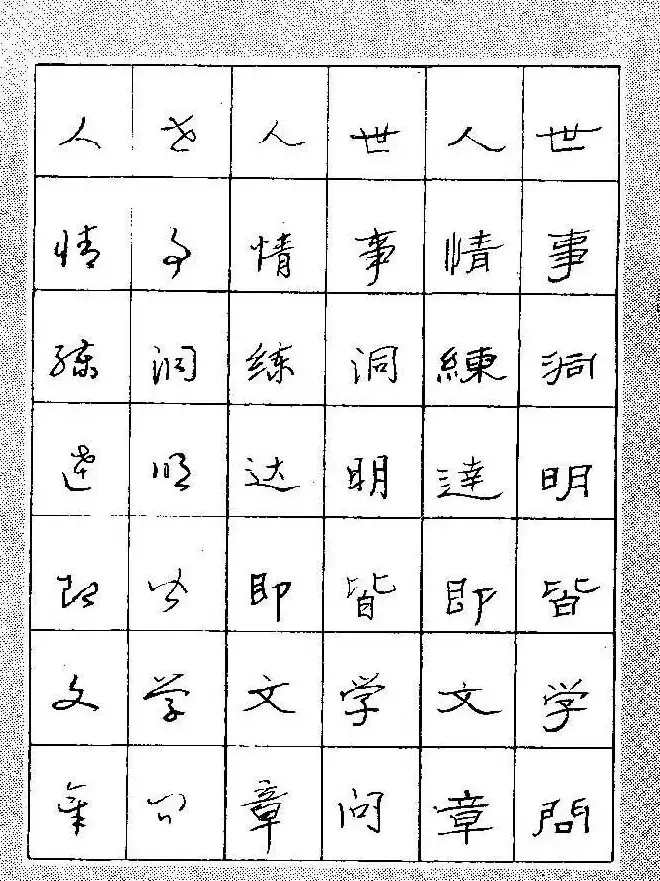 世事洞明皆学問
人情練達即文章
世事洞明皆学问
人情练达即文章
世事洞明皆学问
人情练達即文章